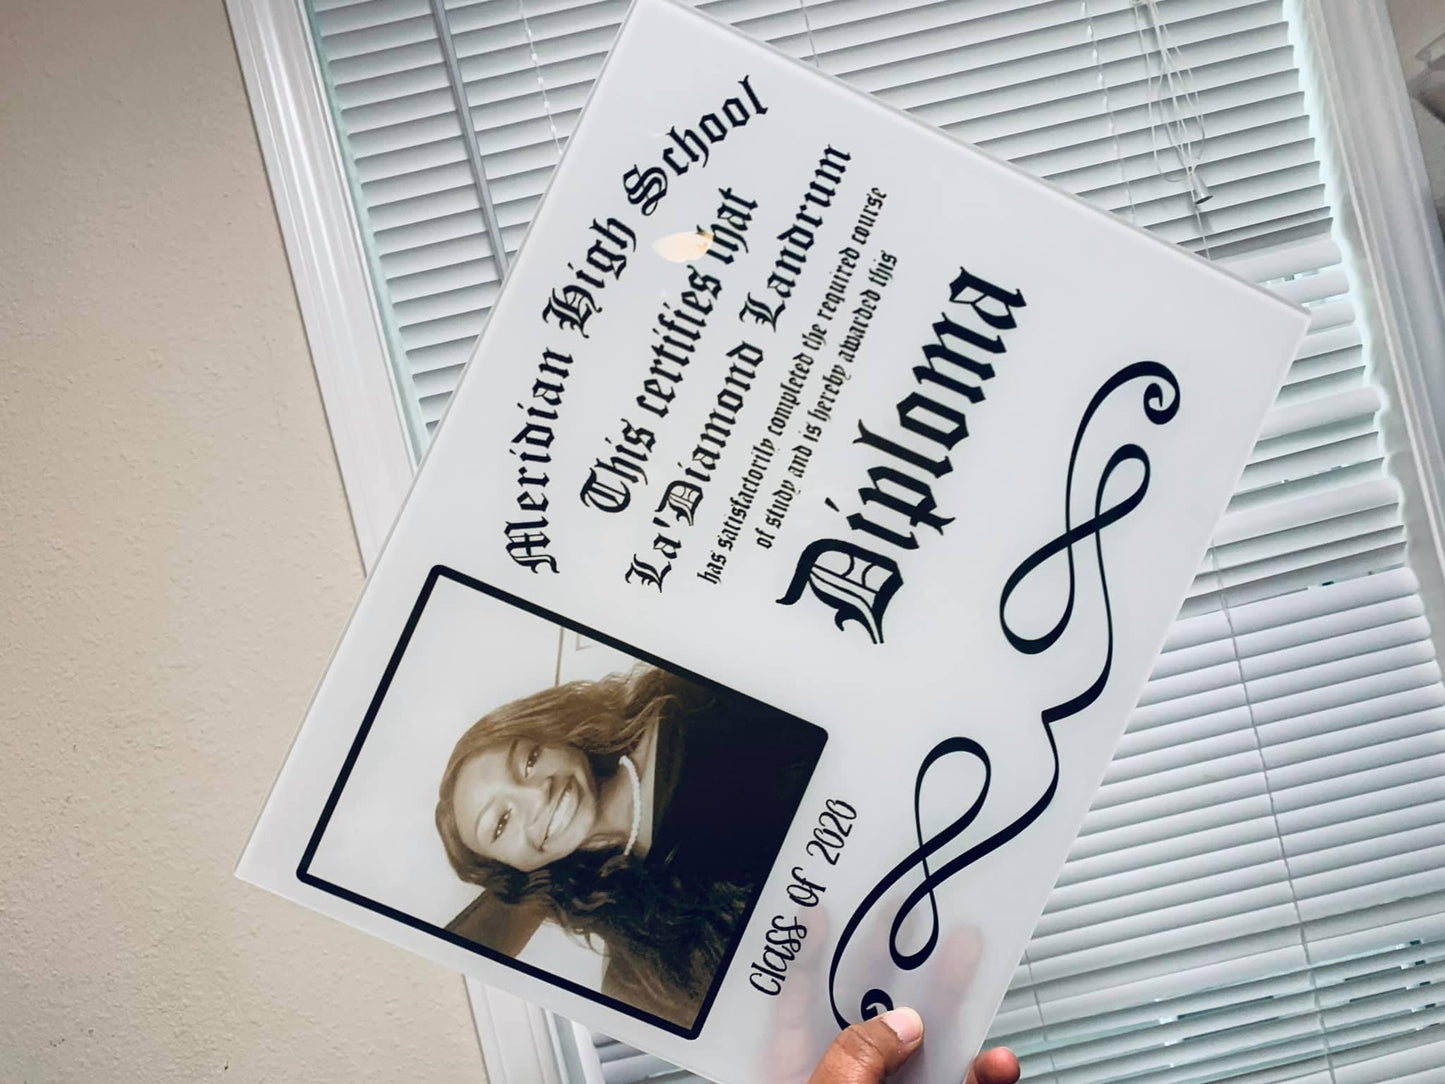 Meridian High School
This certifies that
La'Diamond Landrum
has satisfactorily completed the required course
of study and is hereby awarded this
Diploma
Class of 2020